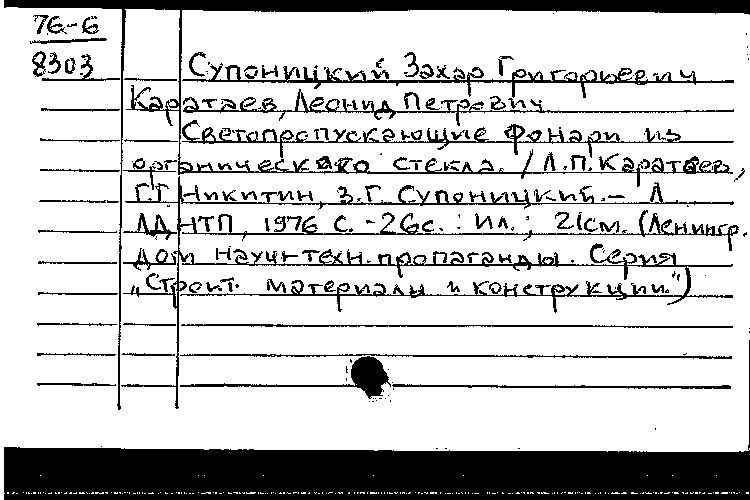 76-6
8303
Супоницкий, Захар Григорьевич
Каратаев, Леонид Петрович
Светопропускающие фонари из
органического стекла. / Л.П. Каратаев,
Г.Г. Никитин, З.Г. Супоницкий. - Л.
ЛДНТП, 1976 с. - 26с. : ил. ; 21см. (Ленингр.
дом научн-техн. пропаганды. Серия
„Строит. материалы и конструкции.")